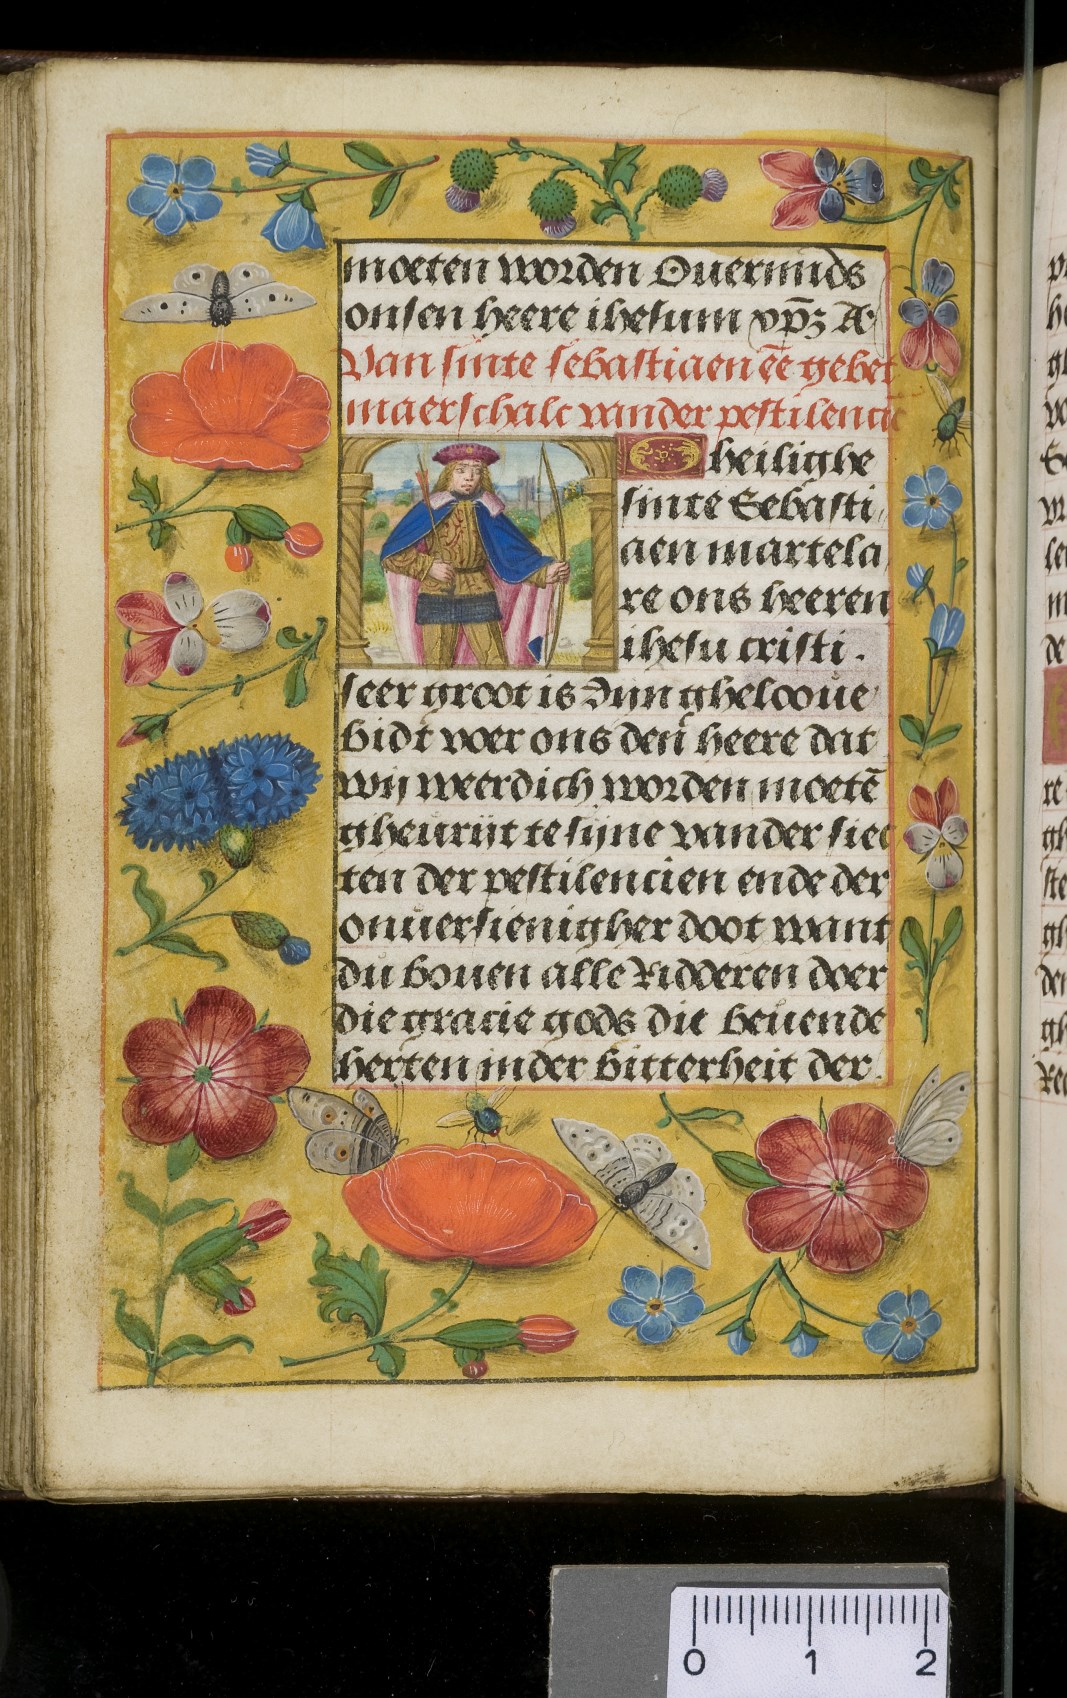 moeten worden Ouermids
onsen heere ihesum xp̄ꝫ A
Van sinte sebastiaen ēe gebet
maerschalc vander pestilencie
O heilighe
sinte Sebasti
aen martela
re ons heeren
ihesu cristi .
seer groot is dijn ghelooue
bidt voer ons den heere dat
wij weerdich worden moetē
gheurijt te sijne vander siec
ten der pestilencien ende der
onuersienigher doot want
du bouen alle Ridderen doer
die gracie gods die beuende
herten in der bitterheit der
0 1 2